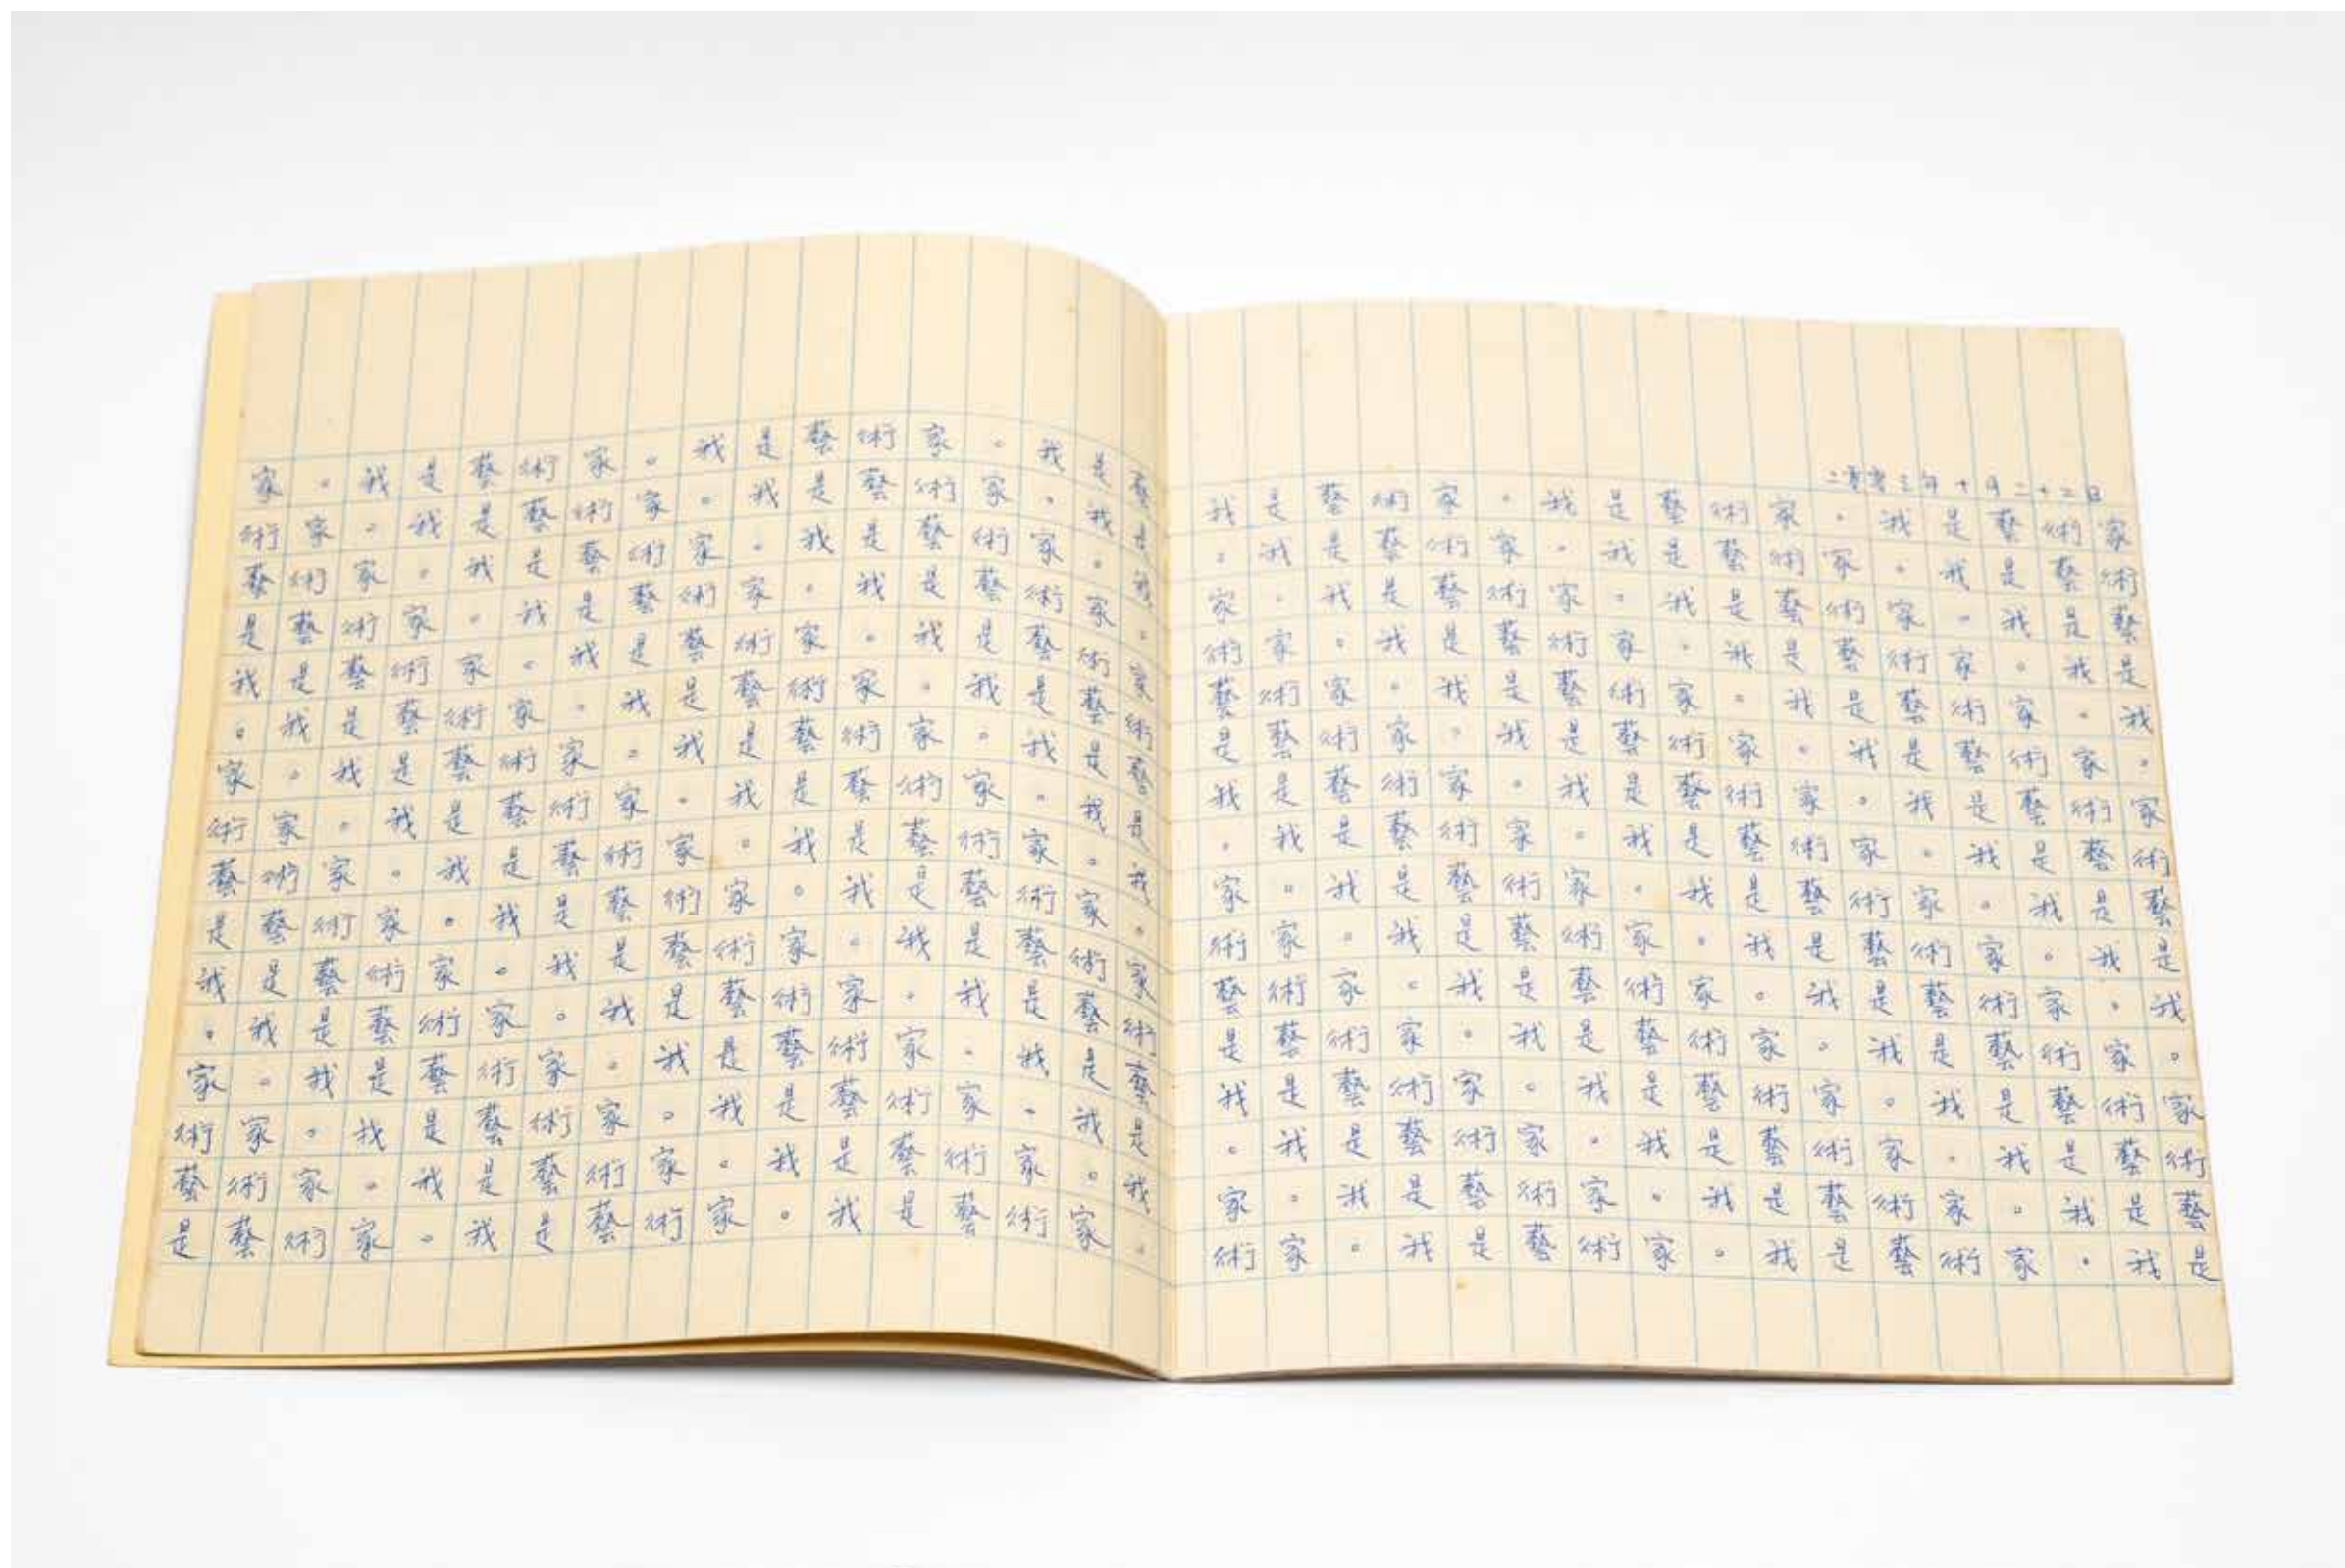 家。我是藝術家。我是藝術家。我是藝
術家。我是藝術家。我是藝術家。我是
藝術家。我是藝術家。我是藝術家。我
是藝術家。我是藝術家。我是藝術家。
我是藝術家。我是藝術家。我是藝術家
。我是藝術家。我是藝術家。我是藝術
家。我是藝術家。我是藝術家。我是藝
術家。我是藝術家。我是藝術家。我是
藝術家。我是藝術家。我是藝術家。我
是藝術家。我是藝術家。我是藝術家。
我是藝術家。我是藝術家。我是藝術家
。我是藝術家。我是藝術家。我是藝術
家。我是藝術家。我是藝術家。我是藝
術家。我是藝術家。我是藝術家。我是
藝術家。我是藝術家。我是藝術家。我
是藝術家。我是藝術家。我是藝術家。
二零零三年十月二十二日
我是藝術家。我是藝術家。我是藝術家
。我是藝術家。我是藝術家。我是藝術
家。我是藝術家。我是藝術家。我是藝
術家。我是藝術家。我是藝術家。我是
藝術家。我是藝術家。我是藝術家。我
是藝術家。我是藝術家。我是藝術家。
我是藝術家。我是藝術家。我是藝術家
。我是藝術家。我是藝術家。我是藝術
家。我是藝術家。我是藝術家。我是藝
術家。我是藝術家。我是藝術家。我是
藝術家。我是藝術家。我是藝術家。我
是藝術家。我是藝術家。我是藝術家。
我是藝術家。我是藝術家。我是藝術家
。我是藝術家。我是藝術家。我是藝術
家。我是藝術家。我是藝術家。我是藝
術家。我是藝術家。我是藝術家。我是